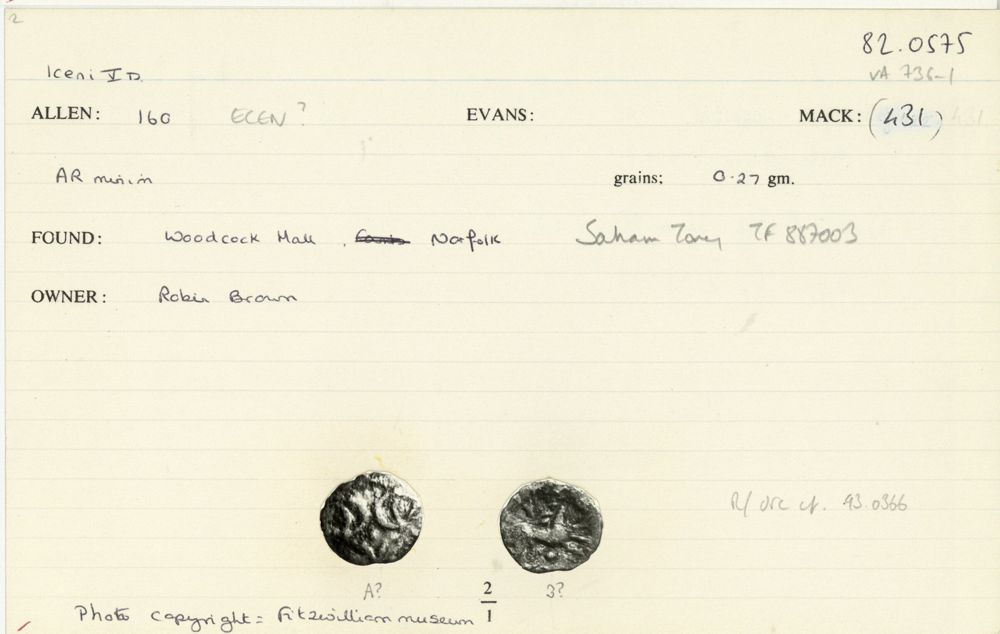 2
82.0575
Iceni V D.
VA 736-1
ALLEN: 160 ECEN? EVANS: MACK: (431) 431
AR minim grains: 0.27 gm.
FOUND: Woodcock Hall, Norfolk Saham Toney TF 887003
OWNER: Robin Brown
R/ die cf. 93.0366
A? 2/1 3?
Photo copyright = Fitzwilliam museum